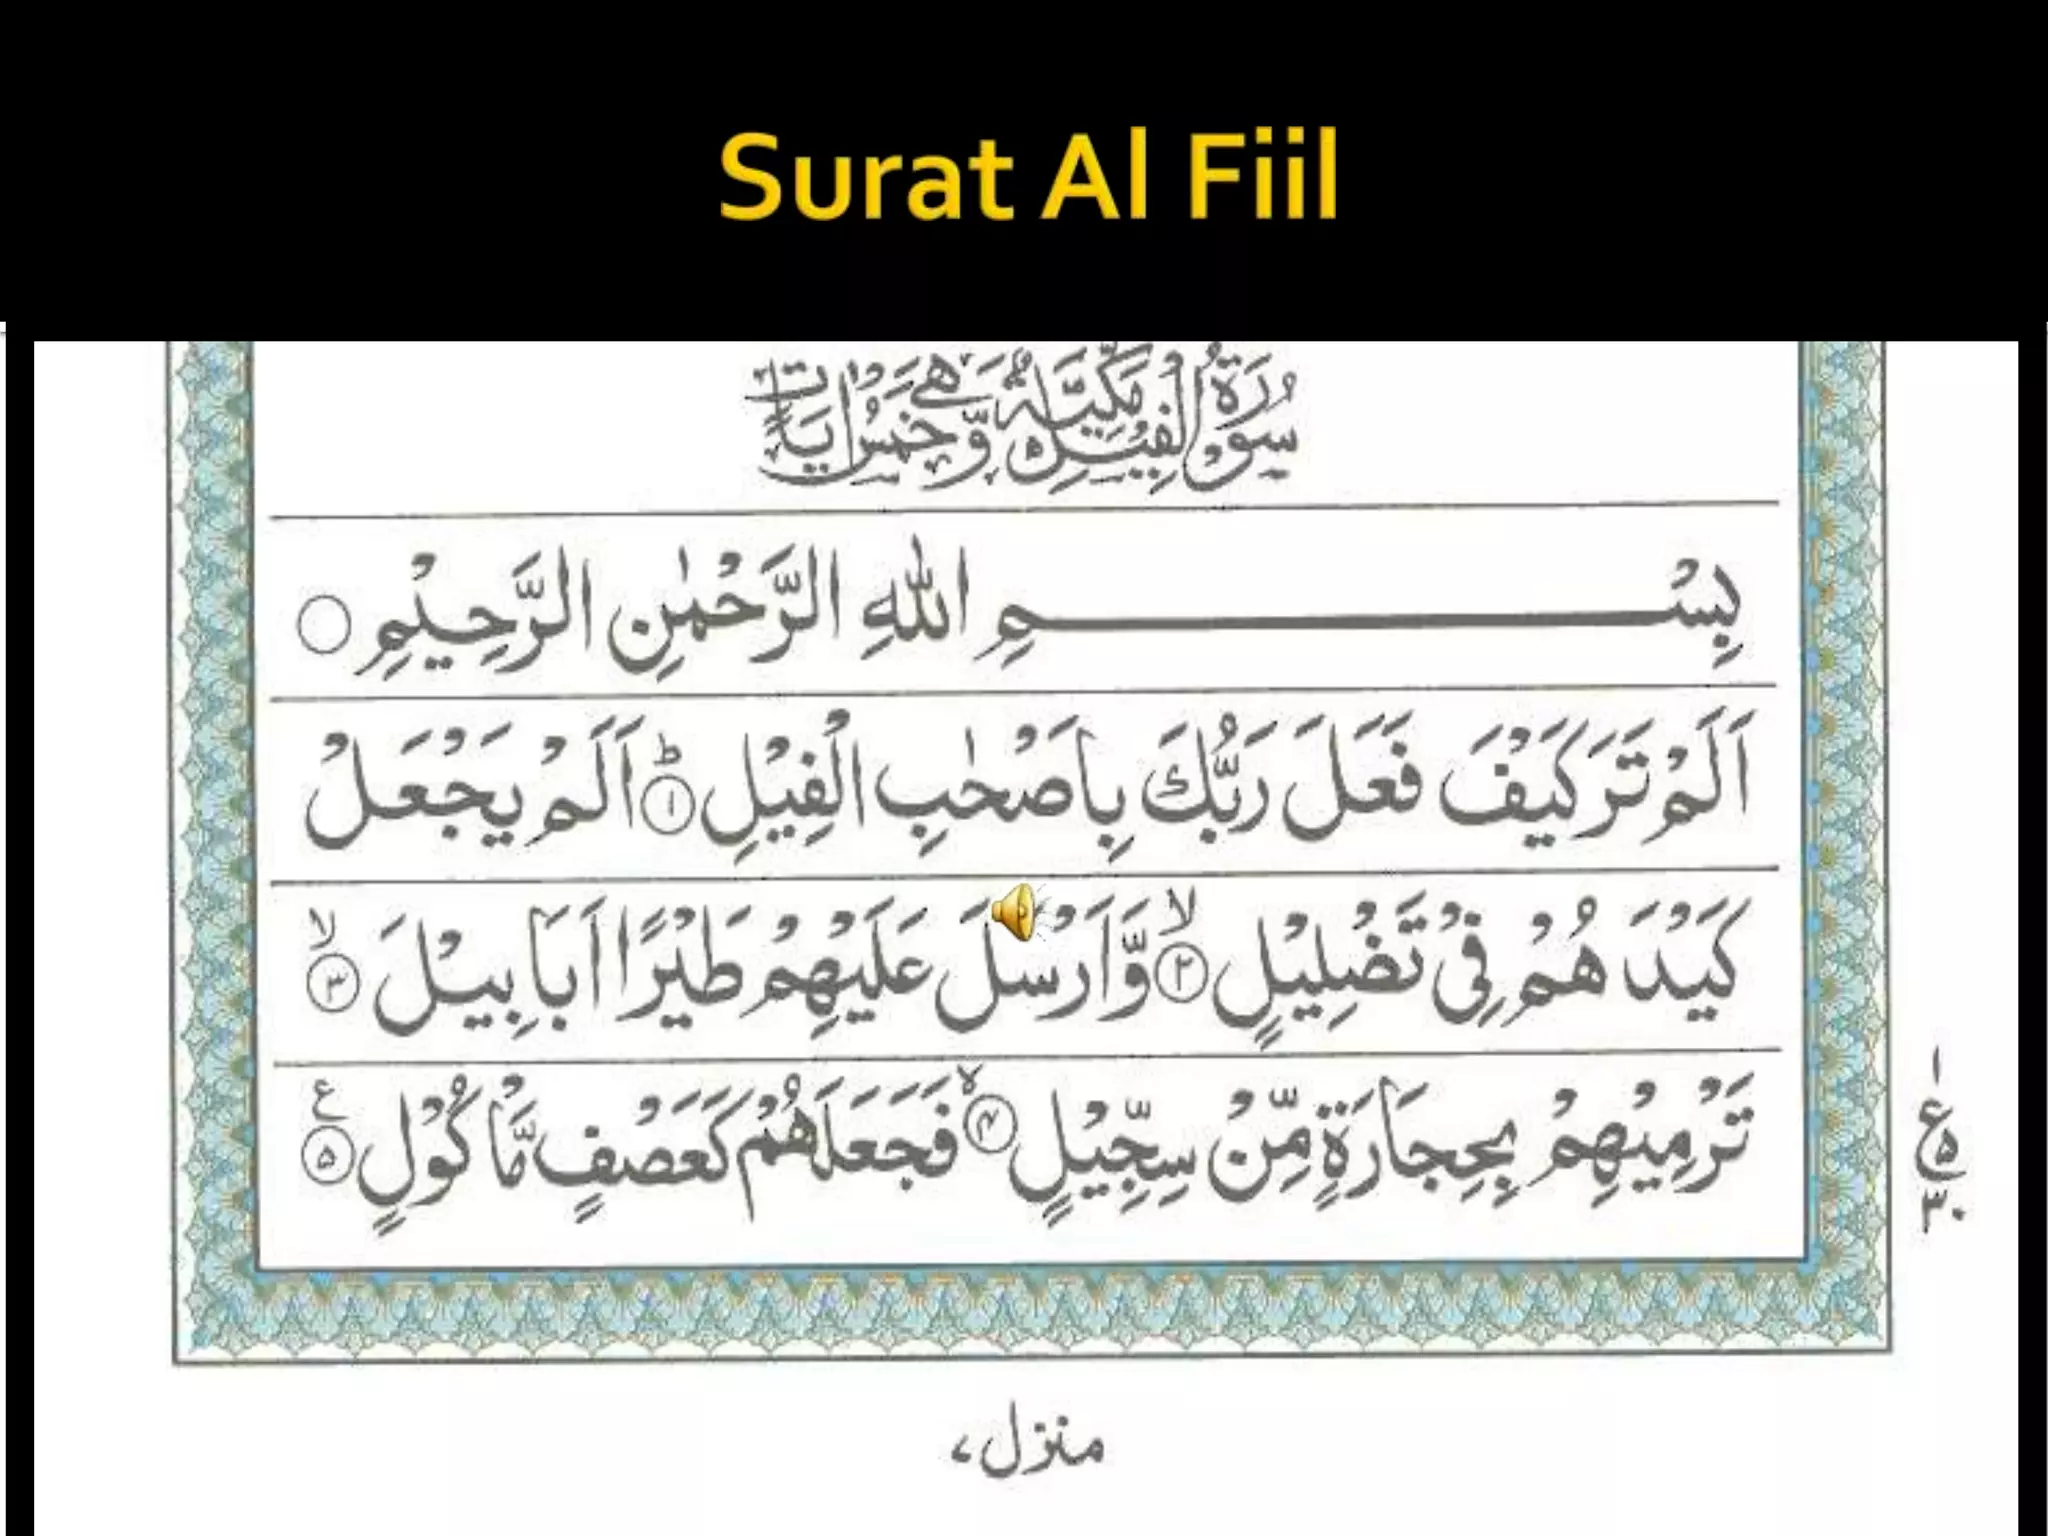 Surat Al Fiil
سُوْرَةُ الْفِيْلِ مَكِّيَّةٌ وَّهِيَ خَمْسُ اٰيَاتٍ
بِسْمِ اللّٰهِ الرَّحْمٰنِ الرَّحِيْمِ
اَلَمْ تَرَ كَيْفَ فَعَلَ رَبُّكَ بِاَصْحٰبِ الْفِيْلِ ؕ ۱ اَلَمْ يَجْعَلْ
كَيْدَهُمْ فِيْ تَضْلِيْلٍ ۙ ۲ وَّاَرْسَلَ عَلَيْهِمْ طَيْرًا اَبَابِيْلَ ۙ ۳
تَرْمِيْهِمْ بِحِجَارَةٍ مِّنْ سِجِّيْلٍ ۴ فَجَعَلَهُمْ كَعَصْفٍ مَّاْكُوْلٍ ع ۵
۱
ع ۵
۳۰
منزل ۷